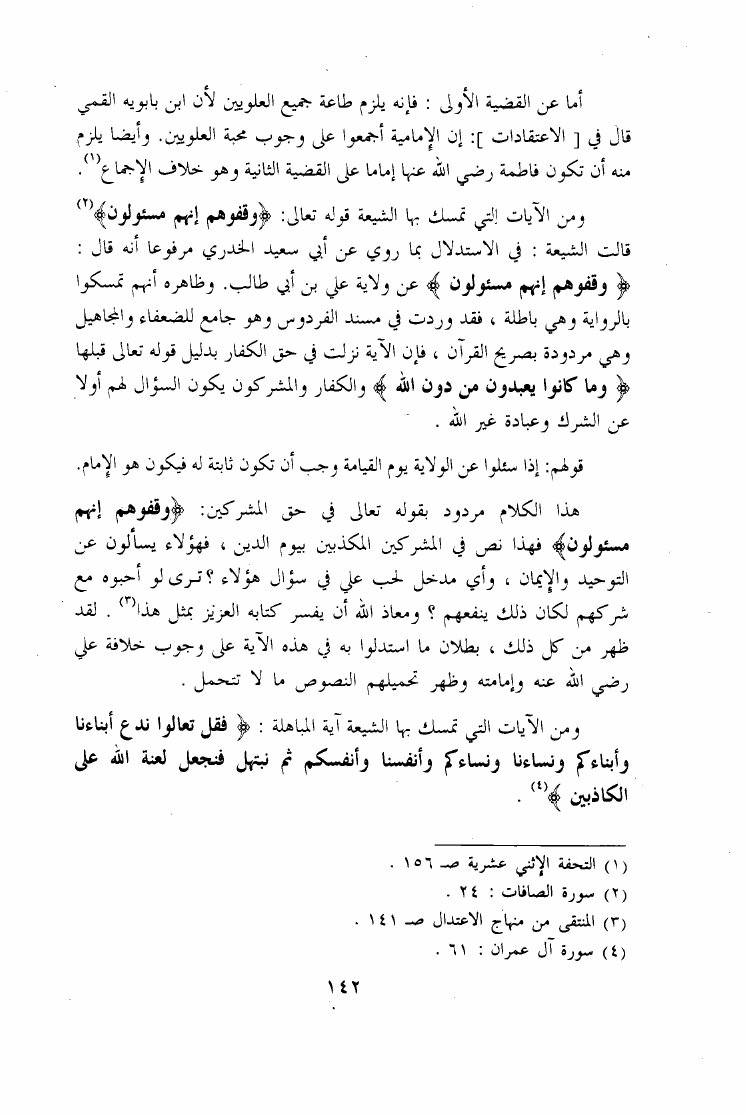 أما عن القضية الأولى : فإنه يلزم طاعة جميع العلويين لأن ابن بابويه القمي
قال في [ الاعتقادات ]: إن الإمامية أجمعوا على وجوب محبة العلويين. وأيضا يلزم
منه أن تكون فاطمة رضي الله عنها إماما على القضية الثانية وهو خلاف الإجماع(١).
ومن الآيات التي تمسك بها الشيعة قوله تعالى: ﴿وقفوهم إنهم مسئولون﴾(٢)
قالت الشيعة : في الاستدلال بما روي عن أبي سعيد الخدري مرفوعا أنه قال :
﴿ وقفوهم إنهم مسئولون ﴾ عن ولاية علي بن أبي طالب. وظاهره أنهم تمسكوا
بالرواية وهي باطلة ، فقد وردت في مسند الفردوس وهو جامع للضعفاء والمجاهيل
وهي مردودة بصريح القرآن ، فإن الآية نزلت في حق الكفار بدليل قوله تعالى قبلها
﴿ وما كانوا يعبدون من دون الله ﴾ والكفار والمشركون يكون السؤال لهم أولا
عن الشرك وعبادة غير الله .
قولهم: إذا سئلوا عن الولاية يوم القيامة وجب أن تكون ثابتة له فيكون هو الإمام.
هذا الكلام مردود بقوله تعالى في حق المشركين: ﴿وقفوهم إنهم
مسئولون﴾ فهذا نص في المشركين المكذبين بيوم الدين ، فهؤلاء يسألون عن
التوحيد والإيمان ، وأي مدخل لحب علي في سؤال هؤلاء ؟ ترى لو أحبوه مع
شركهم لكان ذلك ينفعهم ؟ ومعاذ الله أن يفسر كتابه العزيز بمثل هذا(٣) . لقد
ظهر من كل ذلك ، بطلان ما استدلوا به في هذه الآية على وجوب خلافة علي
رضي الله عنه وإمامته وظهر تحميلهم النصوص ما لا تتحمل .
ومن الآيات التي تمسك بها الشيعة آية المباهلة : ﴿ فقل تعالوا ندع أبناءنا
وأبناءكم ونساءنا ونساءكم وأنفسنا وأنفسكم ثم نبتهل فنجعل لعنة الله على
الكاذبين ﴾(٤) .
(١) التحفة الإثني عشرية صـ ١٥٦ .
(٢) سورة الصافات : ٢٤ .
(٣) المنتقى من منهاج الاعتدال صـ ١٤١ .
(٤) سورة آل عمران : ٦١ .
١٤٢